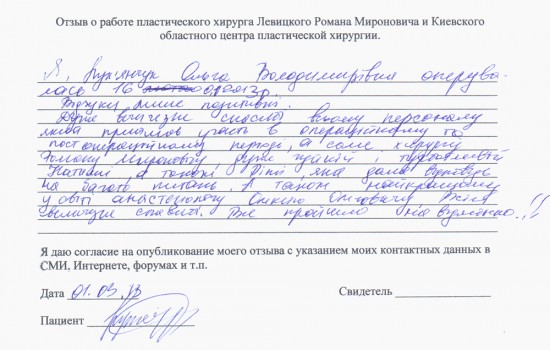 Отзыв о работе пластического хирурга Левицкого Романа Мироновича и Киевского
областного центра пластической хирургии.
Я, Ольга Володимирівна оперува-
лась 16
Відгуки лише позитивні.
Дуже вдячна всьому персоналу
який приймав участь в операційному та
постопераційному періоді, а саме хірургу
Роману Мироновичу дуже чуйній і турботливій
Наталії, а також Лілії яка дала відповідь
на багато питань. А також найкращому
у світі анастезіологу
Все пройшло на відмінно!!
Я даю согласие на опубликование моего отзыва с указанием моих контактных данных в
СМИ, Интернете, форумах и т.п.
Дата 01.03.13 Свидетель
Пациент